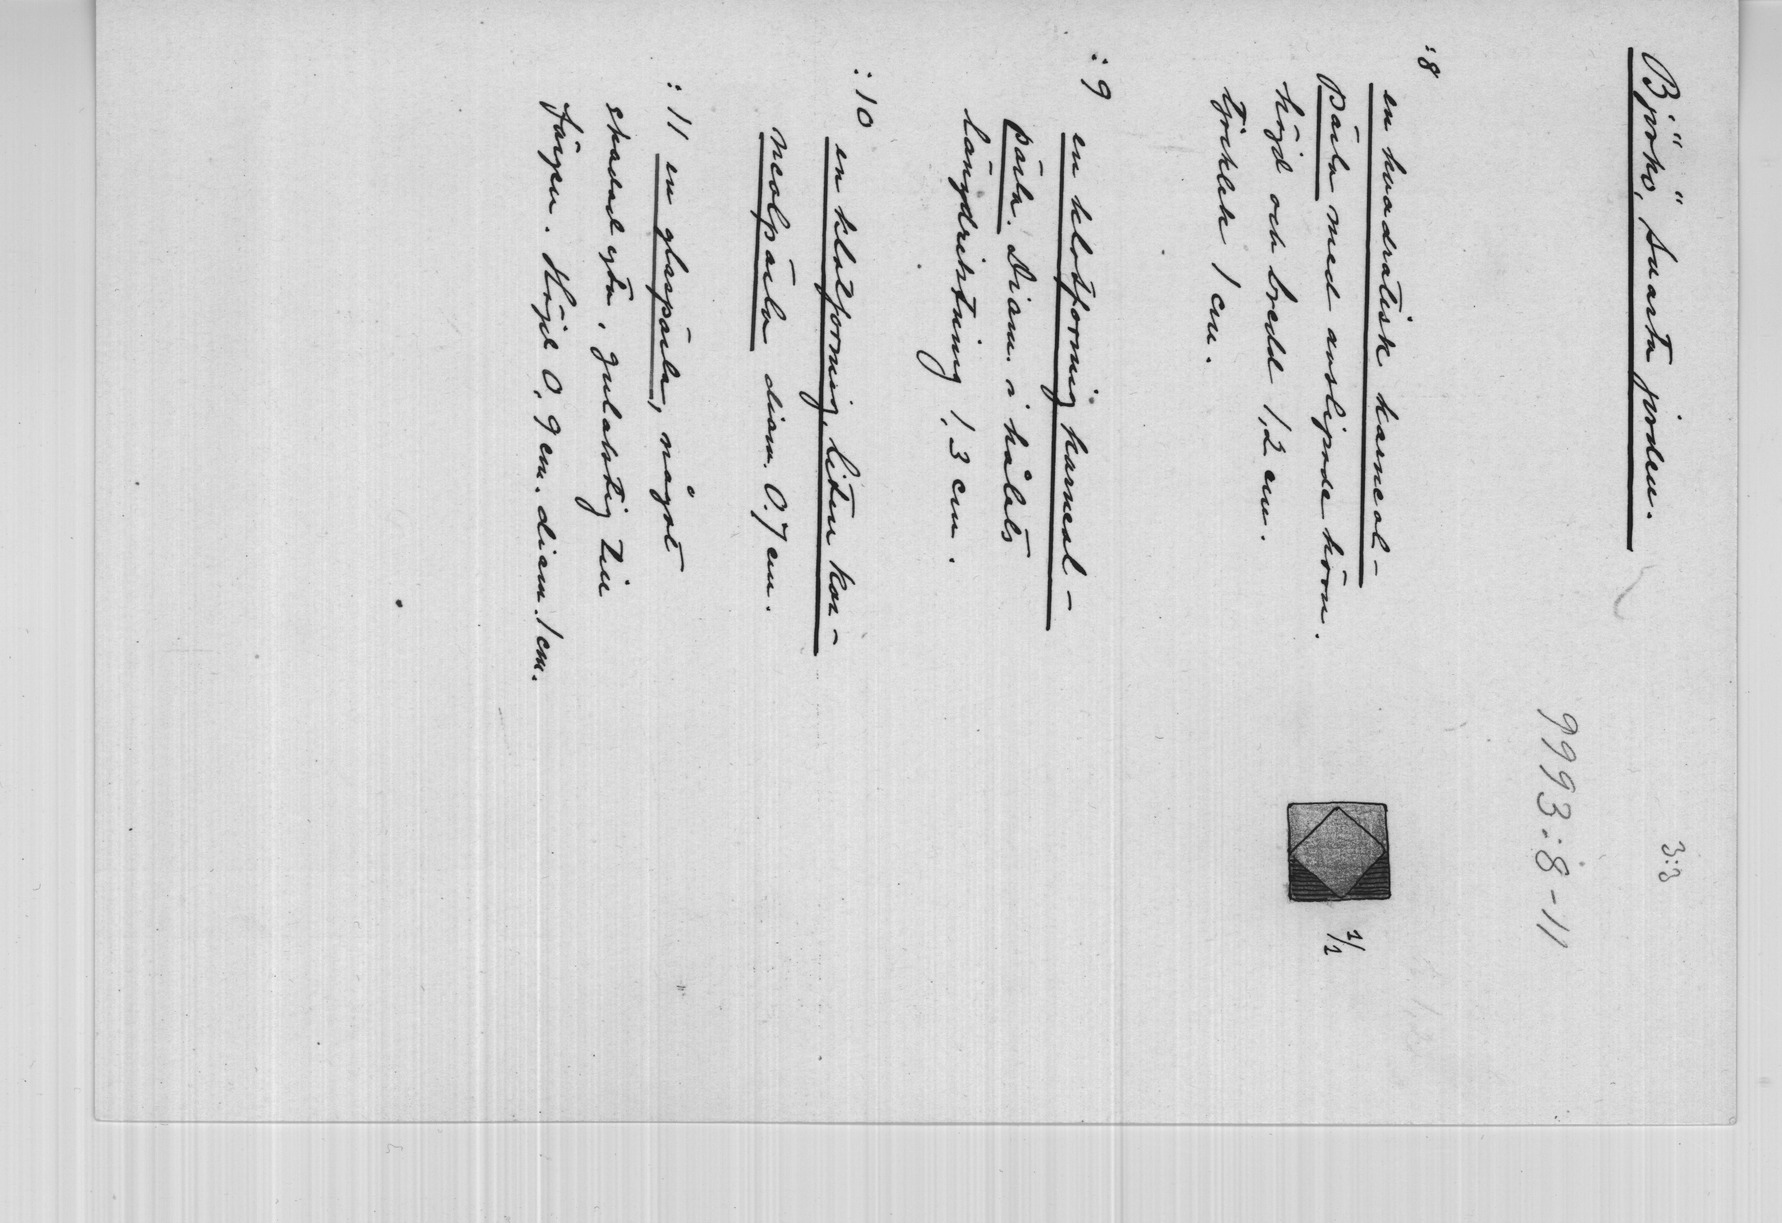 Björkö, Svarta jorden.
3:3
9993:8-11
:8
en kvadratisk karneol-
pärla med avslipade hörn.
höjd och bredd 1,2 cm.
tjocklek 1 cm.
1/1
:9
en klotformig karneol-
pärla. Diam. i hålets
längdriktning 1,3 cm.
:10
en klotformig, liten kar-
neolpärla diam. 0.7 cm.
:11 en glaspärla, något
skadad yta, gulaktig till
färgen. Höjd 0,9 cm. diam. 1 cm.